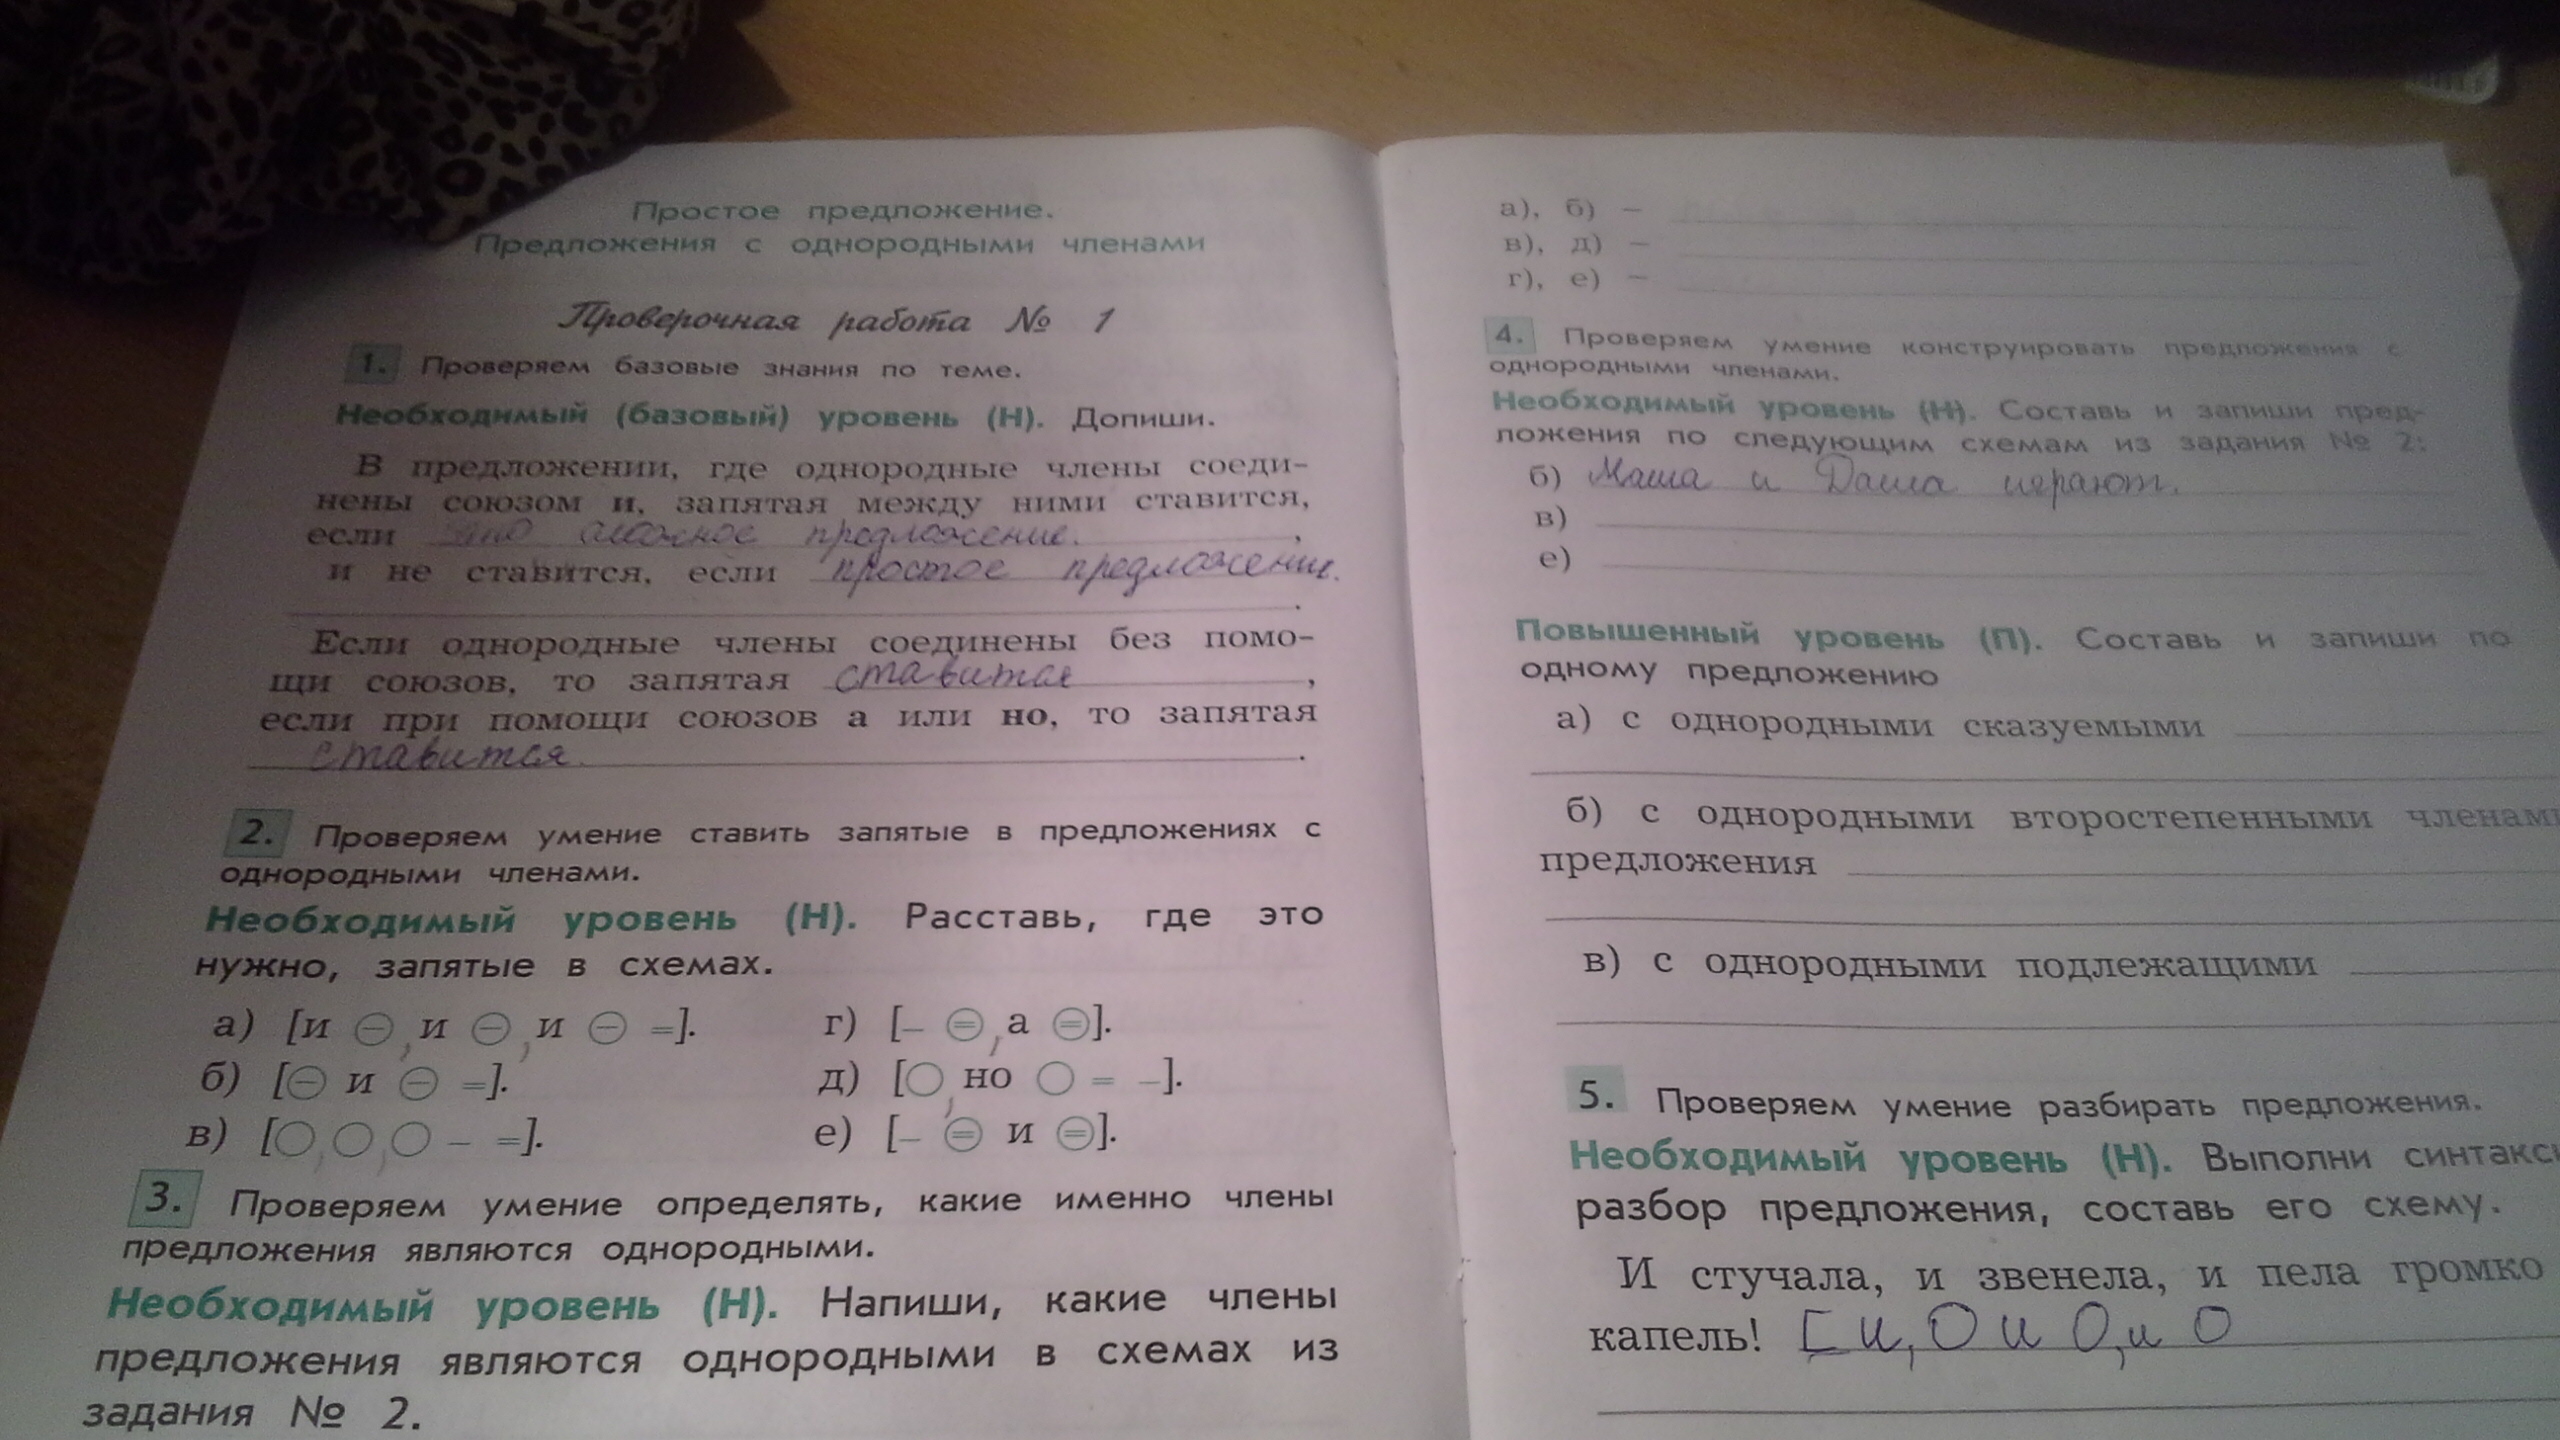 Простое предложение.
Предложения с однородными членами
Проверочная работа № 1
1. Проверяем базовые знания по теме.
Необходимый (базовый) уровень (Н). Допиши.
В предложении, где однородные члены соеди-
нены союзом и, запятая между ними ставится,
если это сложное предложение. ,
и не ставится, если простое предложение.
.
Если однородные члены соединены без помо-
щи союзов, то запятая ставится ,
если при помощи союзов а или но, то запятая
ставится. .
2. Проверяем умение ставить запятые в предложениях с
однородными членами.
Необходимый уровень (Н). Расставь, где это
нужно, запятые в схемах.
а) [и ⊖, и ⊖, и ⊖ =].
б) [⊖ и ⊖ =].
в) [○, ○, ○ – =].
г) [– ⊜, а ⊜].
д) [○, но ○ = –].
е) [– ⊜ и ⊜].
3. Проверяем умение определять, какие именно члены
предложения являются однородными.
Необходимый уровень (Н). Напиши, какие члены
предложения являются однородными в схемах из
задания № 2.
а), б) –
в), д) –
г), е) –
4. Проверяем умение конструировать предложения с
однородными членами.
Необходимый уровень (Н). Составь и запиши пред-
ложения по следующим схемам из задания № 2:
б) Маша и Даша играют.
в)
е)
Повышенный уровень (П). Составь и запиши по
одному предложению
а) с однородными сказуемыми
б) с однородными второстепенными членами
предложения
в) с однородными подлежащими
5. Проверяем умение разбирать предложения.
Необходимый уровень (Н). Выполни синтакси
разбор предложения, составь его схему.
И стучала, и звенела, и пела громко
капель! [и, О и О, и О